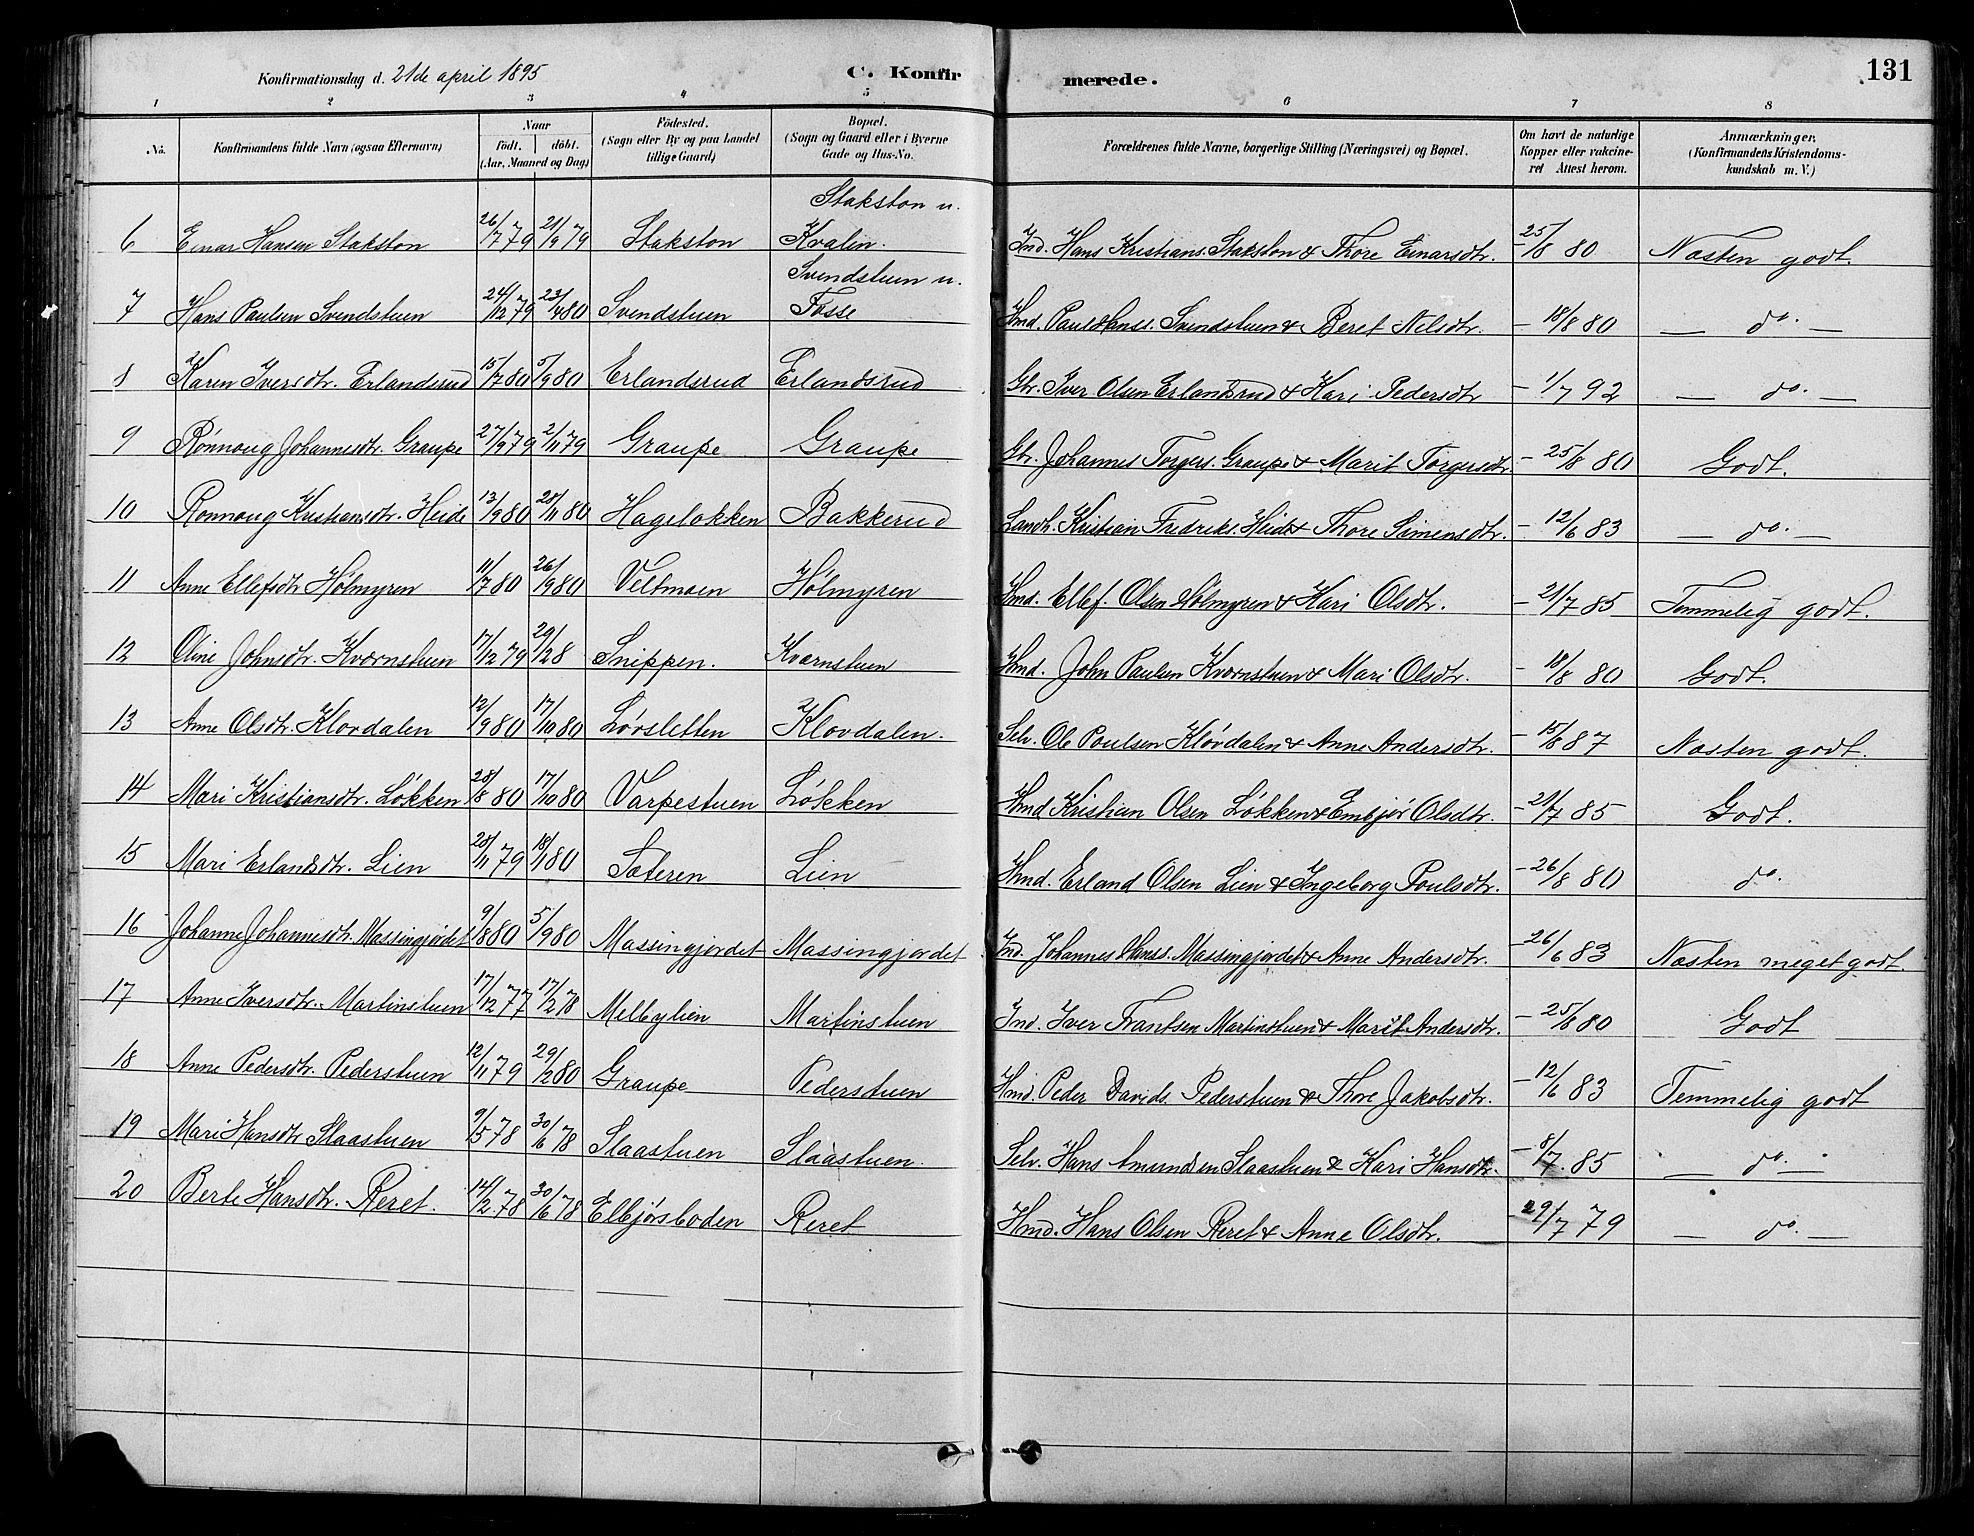 Konfirmationsdag d. 21de april 1895 C. Konfirmerede. 131
1 2 3 4 5 6 7 8
No. Konfirmandens fulde Navn (ogsaa Efternavn) Naar födt. döbt. (Aar, Maaned og Dag) Födested. (Sogn eller By og paa Landet tillige Gaard) Bopæl. (Sogn og Gaard eller i Byerne Gade og Hus-No. Forældrenes fulde Navne, borgerlige Stilling (Næringsvei) og Bopæl. Om havt de naturlige Kopper eller vakcineret Attest herom. Anmærkninger, (Konfirmandens Kristendomskundskab m. V.)
6 Einar Hansen Stakston 26/7 79 21/9 79 Stakston Stakston u. Kvalen. Ind. Hans Kristians. Stakston & Thore Einarsdtr. 25/8 80 Næsten godt.
7 Hans Paulsen Svendstuen 24/12 79 23/4 80 Svendstuen Svendstuen u. Fosse Hmd. Paul Hanss. Svendstuen & Beret Nilsdtr. - 18/8 80 — do. —
8 Karen Iversdtr. Erlandsrud 15/7 80 5/9 80 Erlandsrud Erlandsrud Gbr. Iver Olsen Erlandsrud & Kari Pedersdtr - 1/7 92 — do. —
9 Rönnoug Johannesdtr. Graupe 27/9 79 2/11 79 Graupe Graupe Gbr. Johannes Torgers. Graupe & Marit Torgersdtr - 25/8 80 Godt.
10 Rönnoug Kristiansdtr. Heide 13/9 80 28/11 80 Hagelökken Bakkerud Landh. Kristian Fredriks. Heide & Thore Simensdtr. - 12/6 83 — do. —
11 Anne Ellefsdtr Hölmyren 11/7 80 26/9 80 Veltmoen Hölmyren Hmd. Ellef. Olsen Hölmyren & Kari Olsdtr. - 21/7 85 Temmelig godt.
12 Oline Johnsdtr. Kværnstuen 17/12 79 29/2 8 Snippen. Kværnstuen Hmd. John Paulsen Kværnstuen & Mari Olsdtr. - 18/8 80 Godt.
13 Anne Olsdtr. Klovdalen 12/9 80 17/10 80 Lövsletten Klovdalen. Selv. Ole Poulsen Klövdalen & Anne Andersdtr. - 15/8 87 Næsten godt.
14 Mari Kristiansdtr. Lökken 28/8 80 17/10 80 Varpestuen Lökken Hmd Kristian Olsen Lökken & Embjör Olsdtr. - 21/7 85 Godt.
15 Mari Erlandsdtr. Lien 28/11 79 18/1 80 Sæteren Lien Hmd. Erland Olsen Lien & Ingeborg Poulsdtr. - 26/8 80 do.
16 Johanne Johannesdtr. Massingjordet 9/8 80 5/9 80 Massingjordet Massingjordet Ind. Johannes Hanss. Massingjordet & Anne Andersdtr. - 26/6 83 Næsten meget godt.
17 Anne Iversdtr. Martinstuen 17/12 77 17/2 78 Melbylien Martinstuen Ind. Iver Frantsen Martinstuen & Marit Andersdtr. - 25/8 80 Godt
18 Anne Pedersdtr. Pederstuen 12/11 79 29/2 80 Graupe Pederstuen Hmd. Peder Davids. Pederstuen & Thore Jakobsdtr. - 12/6 83 Temmelig godt
19 Mari Hansdtr Slaastuen 9/5 78 30/6 78 Slaastuen Slaastuen. Selv. Hans Amundsen Slaastuen & Kari Hansdtr. - 8/7. 85 — do. —
20 Berte Hansdtr. Reret. 14/2. 78 30/6 78 Elbjörsboden Reret Hmd. Hans Olsen Reret & Anne Olsdtr. - 29/7 79 — do. —